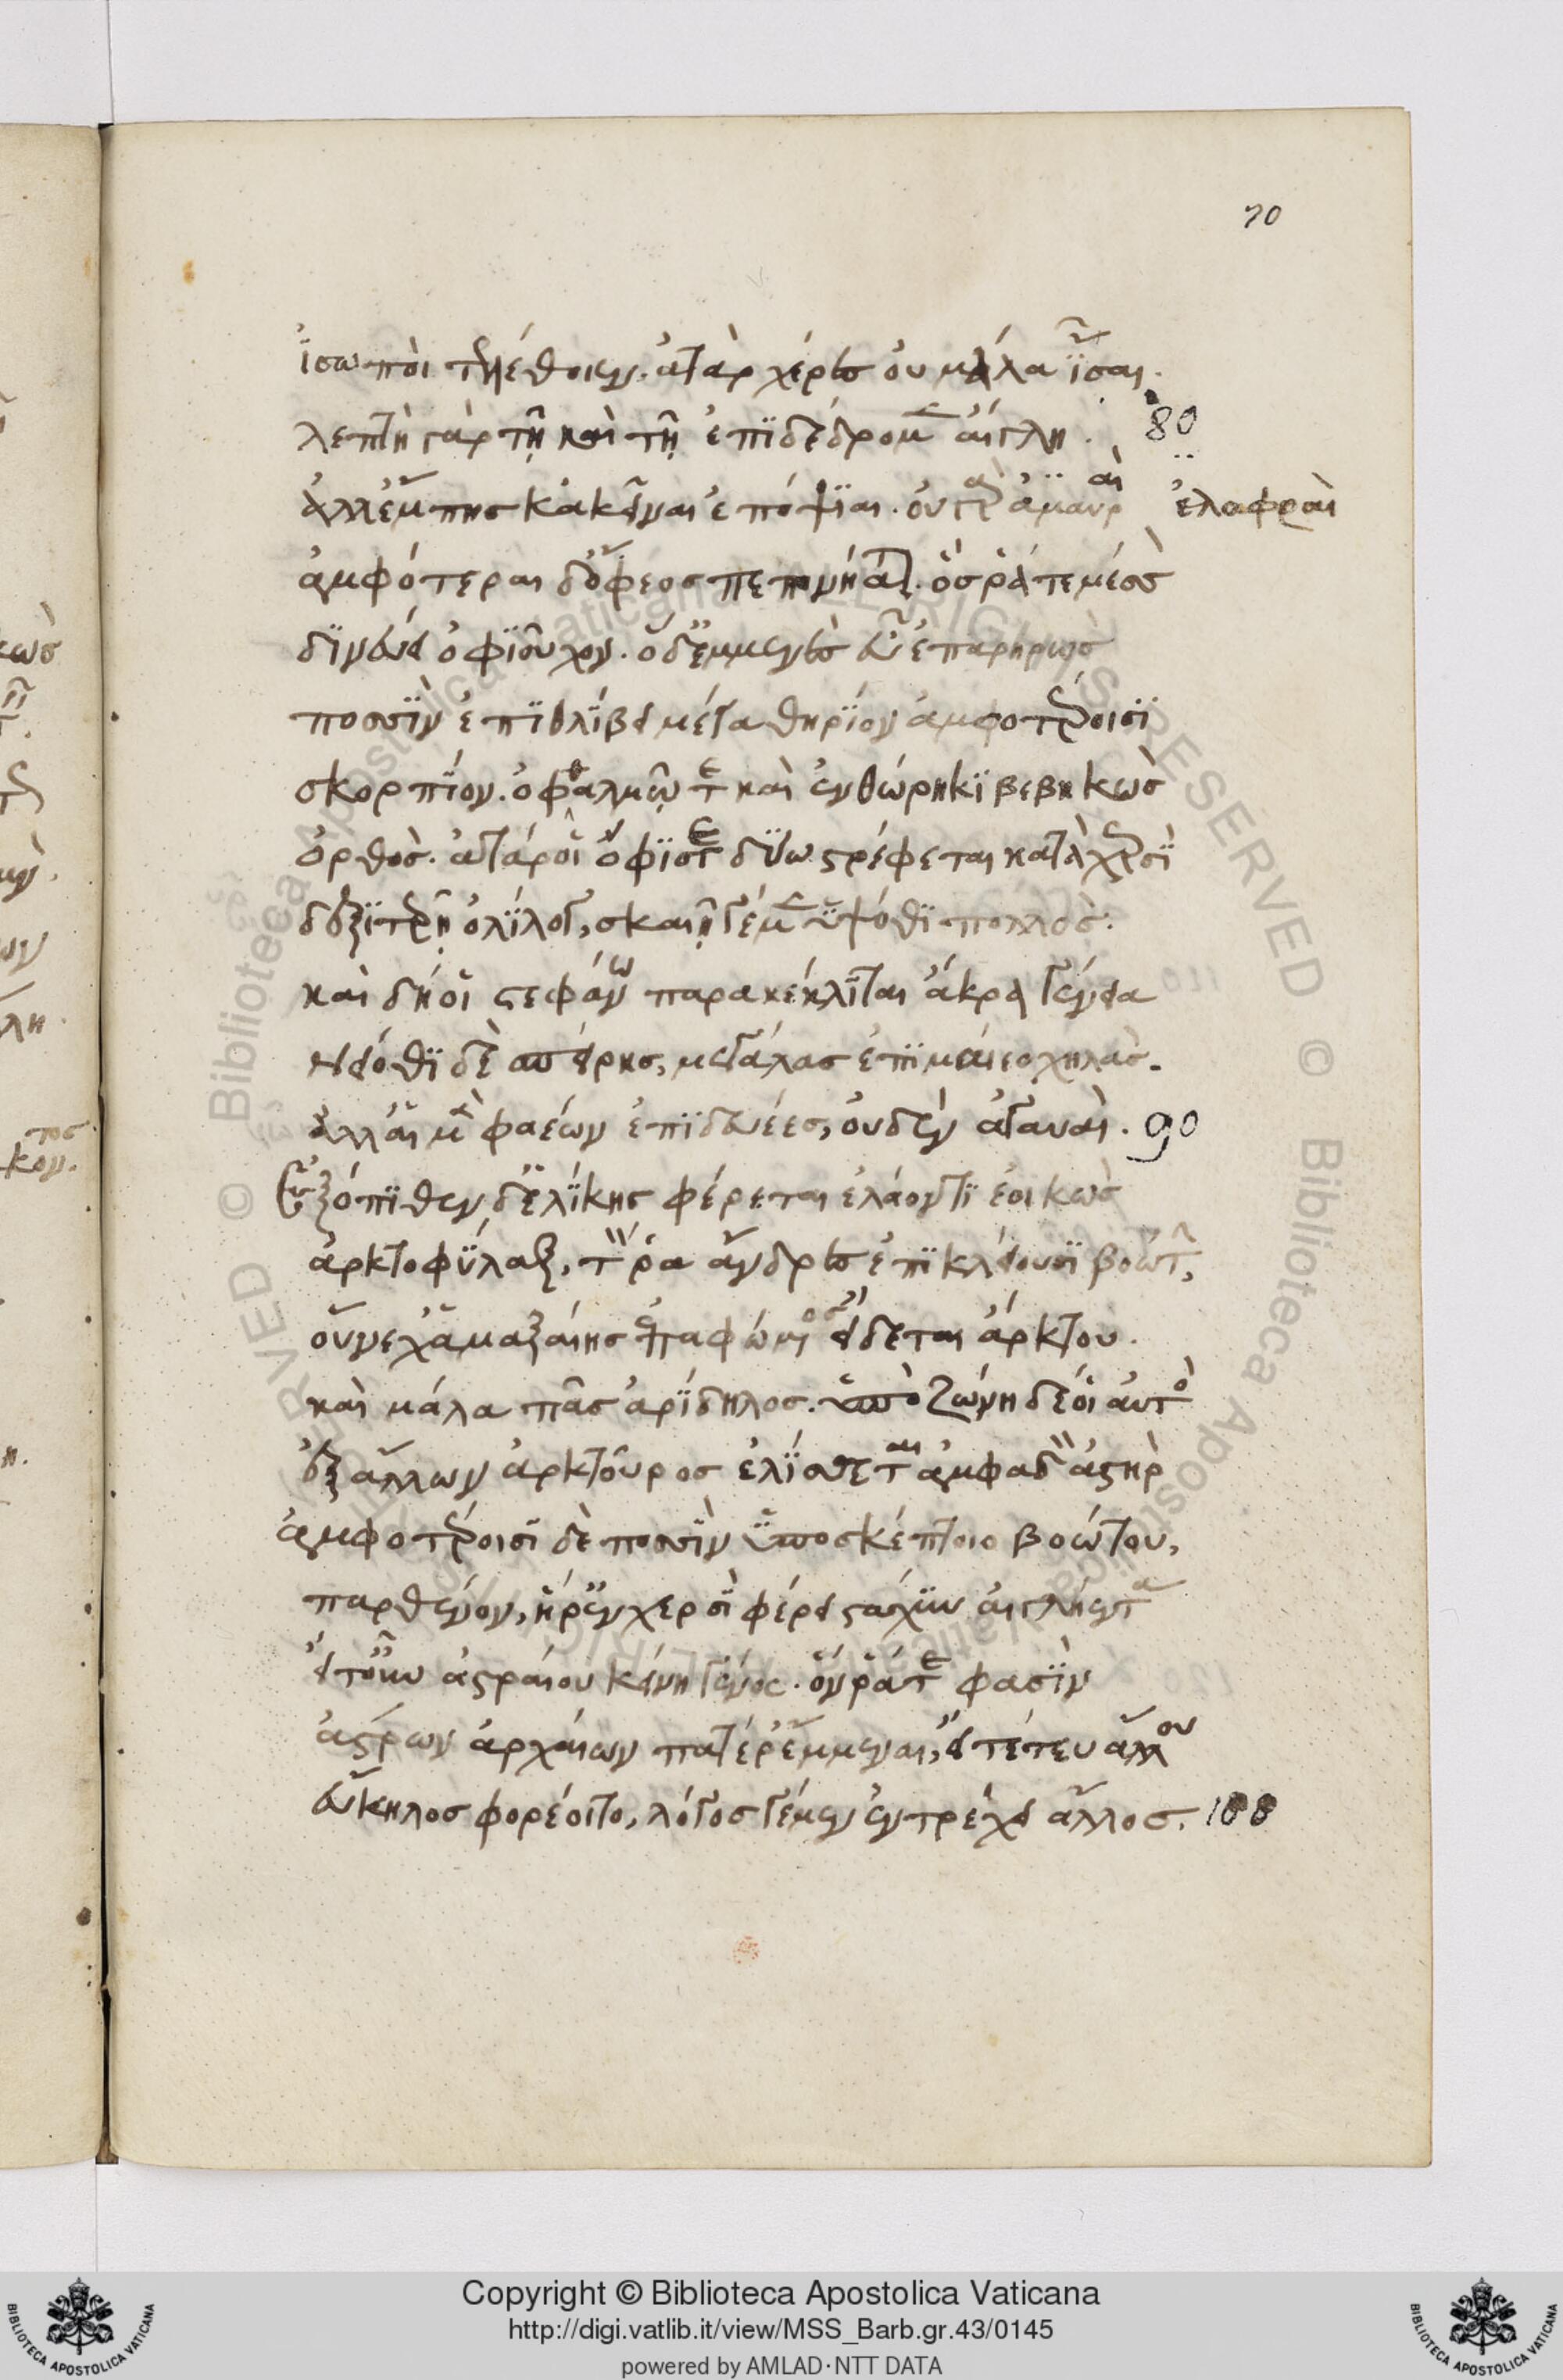 70
ἰσωποὶ τελέθοιεν. ἀτὰρ χέρες οὐ μάλα ἶσαι.
λεπτὴ γὰρ τῇ καὶ τῇ ἐπϊδέδρομεν αἴγλη. 80
ἀλλ' ἔμπης κἀκεῖναι ἐπόψϊαι. οὐ γὰρ ἀμαυραὶ ἐλαφραὶ
ἀμφότεραι δ' ὄφεος πεπονήαται. ὅς ῥά τε μέσσον
δϊνεύει ὀφϊοῦχον. ὁ δ' ἐμμενὲς εὖ ἐπαρηρὼς
ποσσῒν ἐπϊθλΐβει μέγα θηρΐον ἀμφοτέροισϊ
σκορπΐον. ὀφθαλμῷ τε καὶ ἐν θώρηκϊ βεβηκὼς
ὀρθὸς. ἀτάρ οἱ ὄφϊς τε δύω στρέφεται κατὰ χερσῒ
δεξϊτερῇ ὀλΐγος, σκαιῇ γέ μεν ὑψόθϊ πολλὸς.
καὶ δή οἱ στεφάνω παρακέκλϊται ἄκρα γένεια
νειόθϊ δὲ σπείρης, μεγάλας ἐπϊμαίεο χηλὰς.
ἀλλ' αἱ μὲν φαέων ἐπϊδευέες, οὐδὲν ἀγαυαὶ. 90
ἐξόπϊθεν δ' ἑλΐκης φέρεται ἐλάοντϊ ἐοικὼς
ἀρκτοφύλαξ, τόν ῥα ἄνδρες ἐπϊκλείουσϊ βοώτην,
οὕνεχ' ἁμαξαίης ἐπαφώμενος εἴδεται ἄρκτου.
καὶ μάλα πᾶς ἀρΐδηλος. ὑπὸ ζώνη δέ οἱ αὐτὸς
ἐξ ἄλλων ἀρκτοῦρος ἑλΐσσεται ἀμφαδὸν ἀστὴρ
ἀμφοτέροισϊ δὲ ποσσῒν ὕπο σκέπτοιο βοώτου,
παρθένον, ἥ ῥ' ἐν χερσῒ φέρει στάχϋν αἰγλήεντα
εἴτ' οὖν ἀστραίου κείνη γένος. ὅν ῥά τέ φασῒν
ἄστρων ἀρχαίων πατέρ' ἔμμεναι, εἴτέ τευ ἄλλου
εὔκηλος φορέοιτο, λόγος γέ μεν ἐντρέχει ἄλλος. 100
Copyright © Biblioteca Apostolica Vaticana
http://digi.vatlib.it/view/MSS_Barb.gr.43/0145
powered by AMLAD·NTT DATA